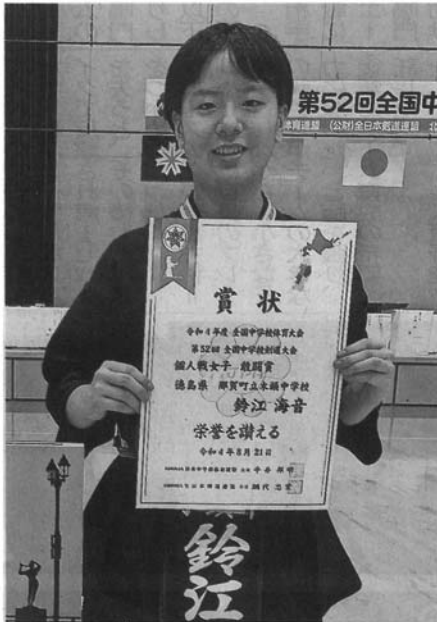 第52回全国中
体育連盟 (公財)全日本剣道連盟 北
賞状
令和4年度 全国中学校体育大会
第52回 全国中学校剣道大会
個人戦女子 敢闘賞
徳島県 那賀町立木頭中学校
鈴江 海音
栄誉を讃える
令和4年8月21日
鈴江